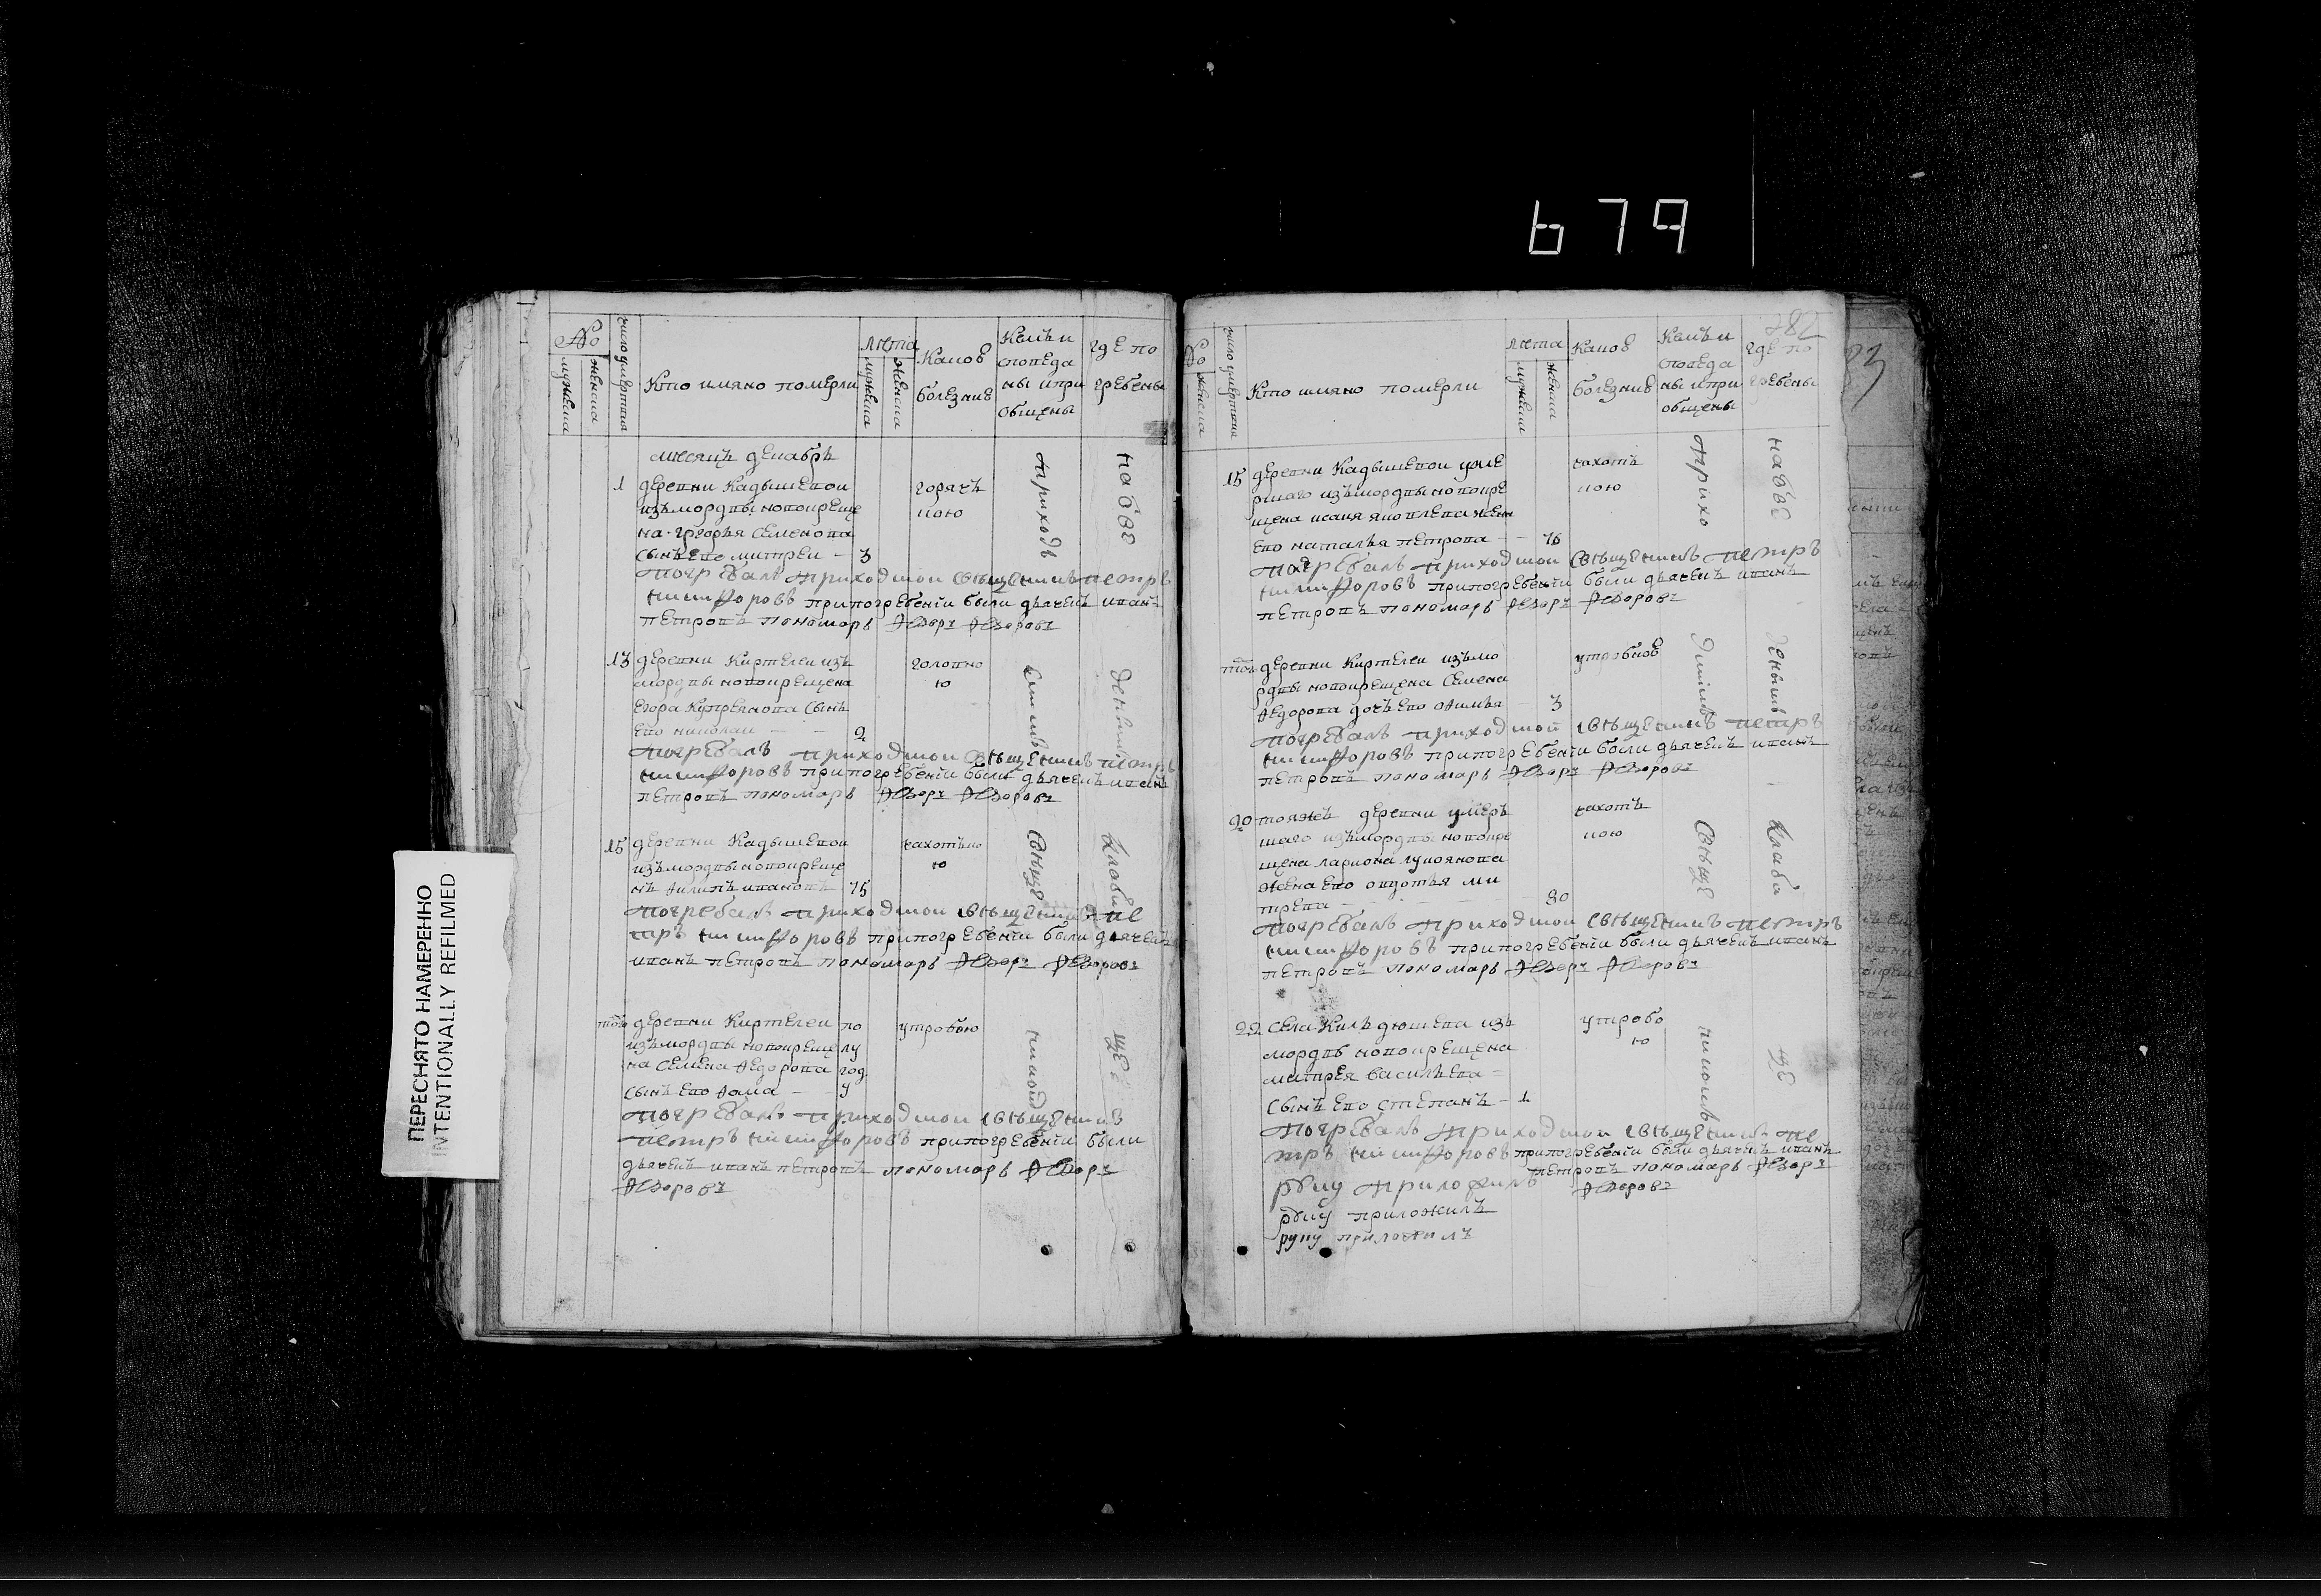 679
No
мужеска
женска
число умертвия
Кто имяно померли
Лета
мужеска
женска
Какою
болезние
Кемъ и
споведа
ны и при
общены
где по
гребены
месяцъ декабрь
1
деревни Кадышевои
изъ мордвы новокреще
на григорья Семенова
сынъ ево митреи - 3
горячь
кою
погребалъ приходскои священникъ петръ
никифоровъ припогребении были дьячекъ иванъ
петровъ пономарь Федоръ Федоровъ
13
деревни Киртелеи изъ
мордвы новокрещена
Егора Купреянова сынъ
ево николаи - - 2
головно
ю
погребалъ приходскои священникъ петръ
никифоровъ припогребении были дьячекъ иванъ
петровъ пономарь Федоръ Федоровъ
15
деревни Кадышевои
изъ мордвы новокреще
нъ Филипъ ивановъ 75
чахотъно
ю
погребалъ приходскои священникъ пе
тръ никифоровъ припогребении были дьячекъ
иванъ петровъ пономарь Федоръ Федоровъ
тогоъ
деревни Киртелеи по
изъ мордвы новокреще лу
на Семена Федорова год
сынъ ево Фома - - у
утробою
погребалъ приходскои священникъ
петръ никифоровъ припогребении были
дьячекъ иванъ петровъ пономарь Федоръ
Федоровъ
приходъ
скимъ
свяще
никомъ
на обег
денныи
кладби
ще
282
No
женска
число умертвия
Кто имяно померли
Лета
мужески
женска
Какое
болезние
Кемъ и
споведа
ны и при
общены
где по
гребены
83
15
деревни Кадышевои уме
ршаго изъ мордвы новокре
щена исака яковлева жена
ево наталья петрова - - 76
чахотъ
кою
погребалъ приходскои священникъ петръ
никифоровъ припогребении были дьячекъ иванъ
петровъ пономарь Федоръ Федоровъ
тогоъ
деревни Киртелеи изъ мо
рдвы новокрещена Семена
Федорова дочь ево Фимья 3
утробное
погребалъ приходскои священникъ петръ
никифоровъ припогребении были дьячекъ иванъ
петровъ пономарь Федоръ Федоровъ
20
тояжъ деревни умеръ
шаго изъ мордвы новокре
щена лариона лукоянова
жена ево овдотья ми
трева - - - 80
чахотъ
кою
погребалъ приходскои священникъ петръ
никифоровъ припогребении были дьячекъ иванъ
петровъ пономарь Федоръ Федоровъ
22
села Кильдюшева изъ
мордвы новокрещена
митрея васильева -
сынъ ево степанъ - 1
утробо
ю
погребалъ приходскои священникъ пе
тръ никифоровъ припогребении были дьячекъ иванъ
петровъ пономарь Федоръ
Федоровъ
руку приложилъ
руку приложилъ
руку приложилъ
прихо
дскимъ
свяще
никомъ
на обег
денныи
кладби
ще
ПЕРЕСНЯТО НАМЕРЕННО
INTENTIONALLY REFILMED